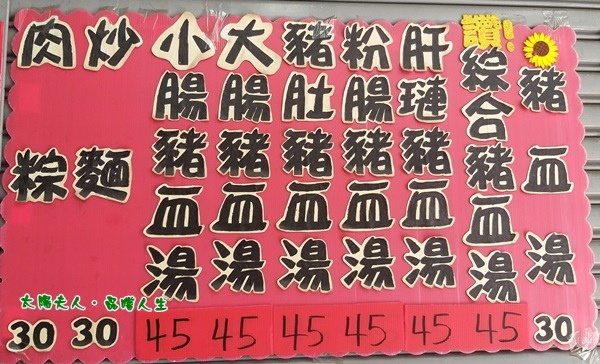 豬血湯
30
讚
綜合豬血湯
45
肝璉豬血湯
45
粉腸豬血湯
45
豬肚豬血湯
45
大腸豬血湯
45
小腸豬血湯
45
炒麵
30
肉粽
30
太陽夫人 · 人生